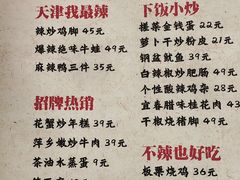 天津我最辣
辣炒鸡脚 45元
爆辣绝味牛蛙 49元
麻辣鸭三件 35元
招牌热销
花蟹炒年糕 39元
萍乡嫩炒牛肉 39元
茶油水蒸蛋 9元
下饭小炒
搓菜金钱蛋 22元
萝卜干炒粉皮 21元
钢盆鱿鱼 39元
白辣椒炒肥肠 49元
个性酸辣鸡杂 28元
宜春腊味桂花肉 43元
干椒烧猪脚 49元
不辣也好吃
板栗烧鸡 36元